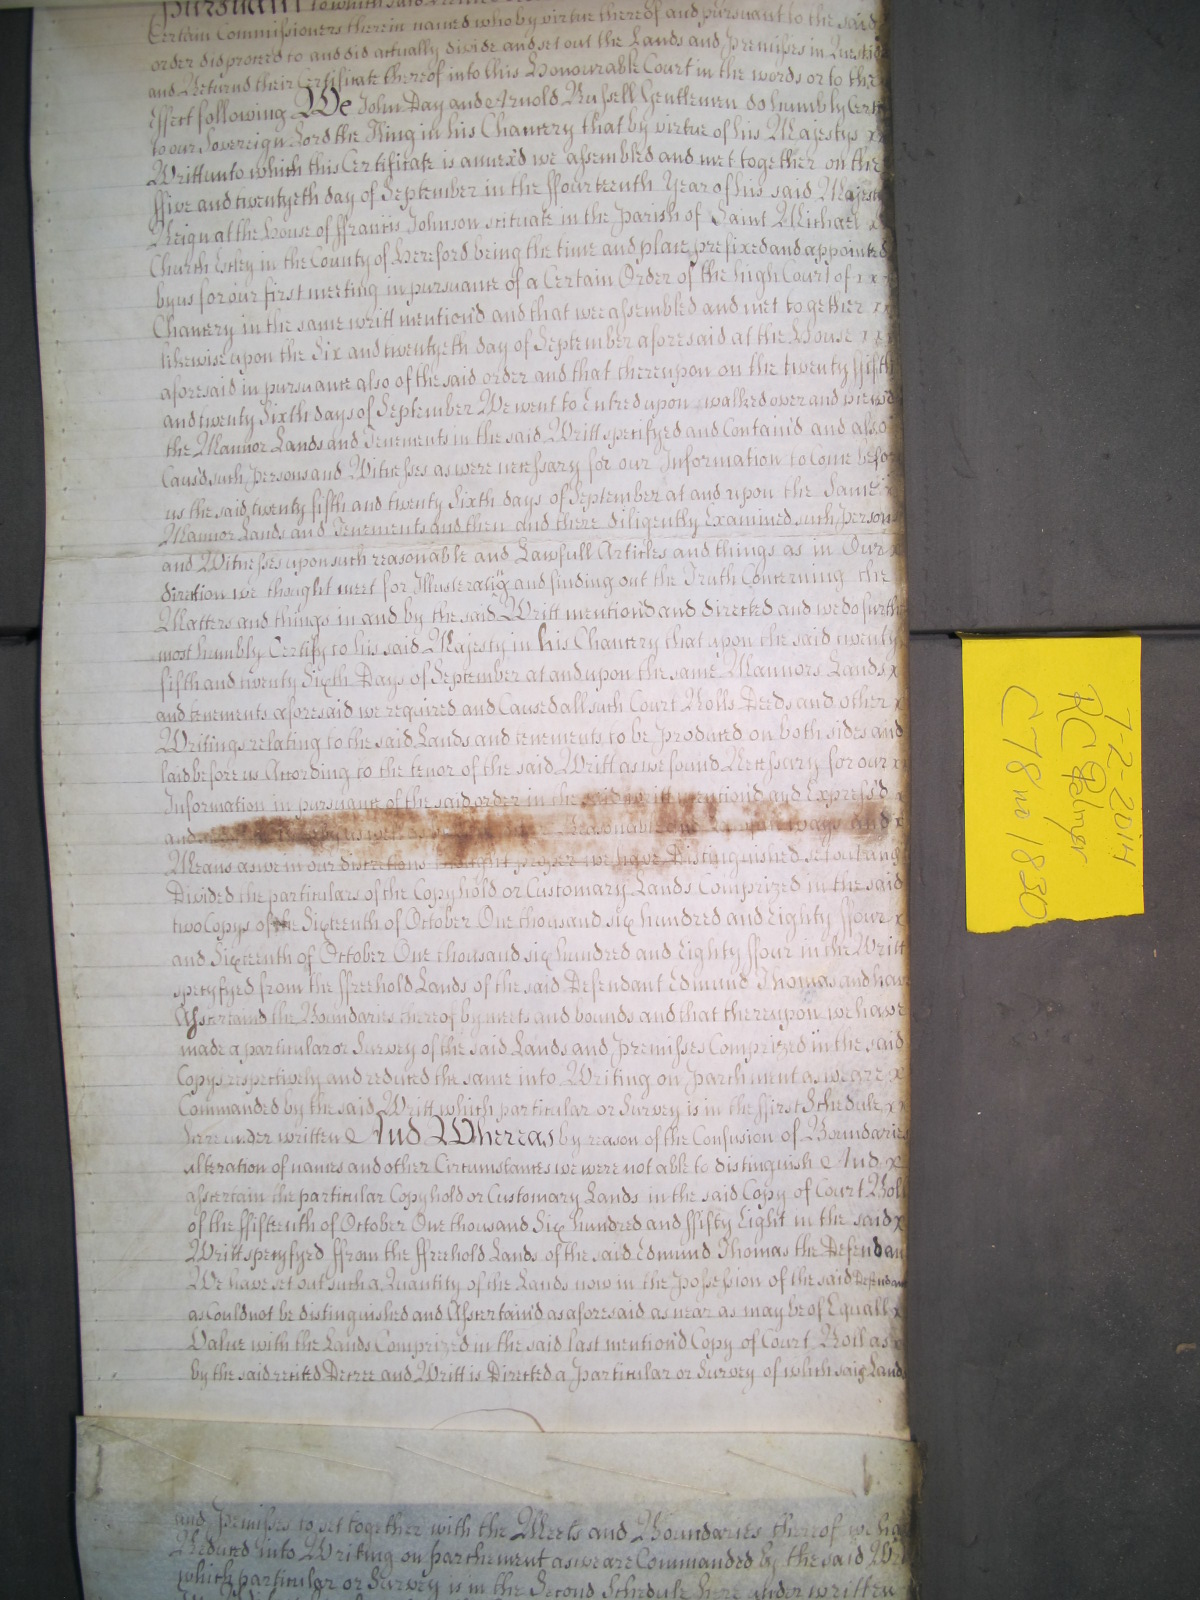 pursuant to which said
Certain Commissioners therein named who by virtue thereof and pursuant to the said
order did proceed to and did actually divide and set out the Lands and Premisses in Question
and Returnd their Certificate thereof into this Honourable Court in the words or to the
Effect following We John Day and Arnold Russell Gentlemen do humbly Certi
to our Sovereign Lord the King in his Chancery that by virtue of his Majestys xx
Writt unto which this Certificate is annex'd we assembled and met together on the
ffive and twentyeth day of September in the ffourteenth Year of his said Majest
Reign at the House of ffrancis Johnson scituate in the Parish of Saint Michael x
Church Estley in the County of Hereford being the time and place prefixed and appointed
by us for our first meeting in pursuance of a Certain Order of the high Court of xx
Chancery in the same writt mention'd and that we assembled and met together xx
likewise upon the Six and twentyeth day of September aforesaid at the House xx
aforesaid in pursuance also of the said order and that thereupon on the twenty ffifth
and twenty Sixth days of September We went to Entred upon walked over and view'd
the Mannor Lands and Tenements in the said Writt specifyed and Contain'd and also
Caus'd such Persons and Witnesses as were necessary for our Information to Come befor
us the said twenty fifth and twenty Sixth days of September at and upon the Same x
Mannor Lands and Tenements and then and there diligently Examined such Person
and Witnesses upon such reasonable and Lawfull Articles and things as in Our x
direction we thought meet for Illustrating and finding out the Truth Concerning the
Matters and things in and by the said Writt mention'd and directed and we do furth
most humbly Certify to his said Majesty in his Chancery that upon the said twenty
fifth and twenty Sixth Days of September at and upon the same Mannors Lands x
and tenements aforesaid we required and Caused all such Court Rolls Deeds and other x
Writings relating to the said Lands and tenements to be Produced on both sides and
laid before us According to the tenor of the said Writt as we found Necessary for our x
Information in pursuance of the said order in the said writt mention'd and Express'd x
and by us as well by Reasonable ways and x
Means as we in our discretions thought proper we have Distinguished set out and
Divided the particulars of the Copyhold or Customary Lands Comprized in the said
two Copys of the Sixteenth of October One thousand six hundred and Eighty ffour x
and Sixteenth of October One thousand six hundred and Eighty ffour in the Writt
specyfyed from the ffreehold Lands of the said Defendant Edmund Thomas and have
Ascertaind the Boundaries thereof by meets and bounds and that thereupon we have
made a particular or Survey of the said Lands and Premisses Comprized in the said
Copys respectively and reduced the same into Writing on parchment as we are x
Commanded by the said Writt which particular or Survey is in the ffirst Schedule xx
hereunder written And Whereas by reason of the Confusion of Boundaries
alteration of names and other Circumstances we were not able to distinguish And x
ascertain the particular Copyhold or Customary Lands in the said Copy of Court Roll
of the ffifteenth of October One thousand Six hundred and ffifty Eight in the said x
Writt specyfyed ffrom the ffreehold Lands of the said Edmund Thomas the Defendan
We have set out such a Quantity of the Lands now in the Possession of the said Defendan
as Could not be distinguished and Ascertain'd as aforesaid as near as may be of Equall x
Value with the Lands Comprized in the said last mention'd Copy of Court Roll as x
by the said recited Decree and Writt is Directed a Particular or Survey of which said Land
and Premisses so set together with the Meets and Boundaries thereof we ha
Reduced into Writing on parchement as we are Commanded by the said Wri
which particular or Survey is in the Second Schedule here under written
7-2-2014
RC Palmer
C78 no 1830